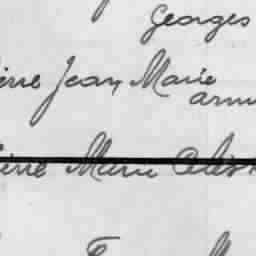 Georges
erre Jean Marie
armu
ierre Marie Alix